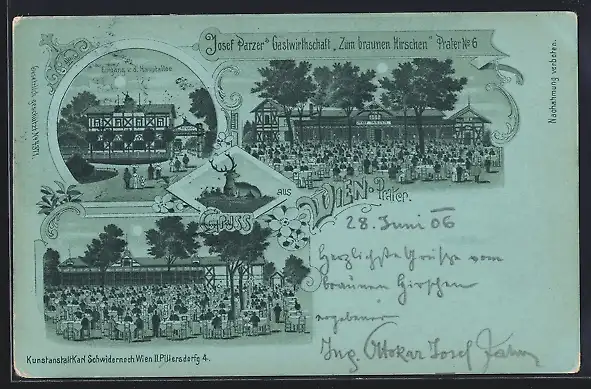 Josef Parzer's Gastwirthschaft „Zum braunen Hirschen" Prater No 6
Eingang v. d. Hauptallee
Gesetzlich geschützt
Nachahmung verboten.
GRUSS AUS WIEN - Prater.
28. Juni 06
Herzlichste Grüße vom
braunen Hirschen
ergebener
Ing. Ottokar Josef
Kunstanstalt Karl Schwidernoch Wien II. Pillersdorfg 4.